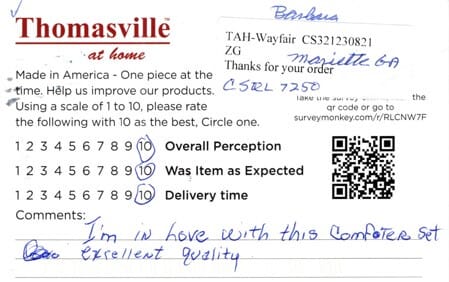 Barbara
Thomasville
at home
TAH-Wayfair CS321230821
ZG
Marietta GA
Thanks for your order
CSRL 7250
Made in America - One piece at the
time. Help us improve our products.
Using a scale of 1 to 10, please rate
the following with 10 as the best, Circle one.
the
qr code or go to
surveymonkey.com/r/RLCNW7F
1 2 3 4 5 6 7 8 9 10 Overall Perception
1 2 3 4 5 6 7 8 9 10 Was Item as Expected
1 2 3 4 5 6 7 8 9 10 Delivery time
Comments:
I'm in Love with this Computer set
excellent quality